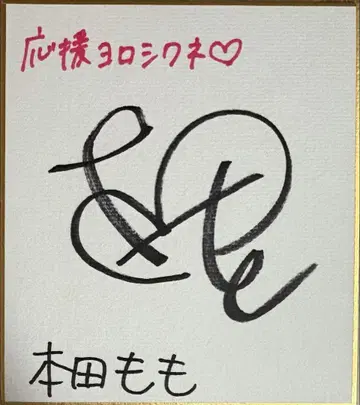 応援ヨロシクネ♡
本田もも